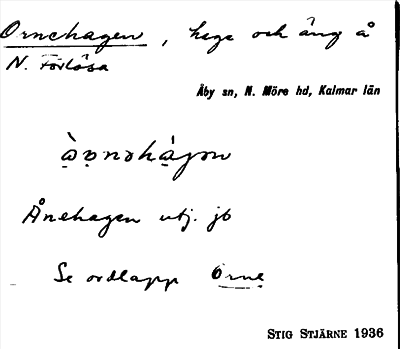 Ornehagen, hage och äng å
N. Förlösa
Åby sn, N. Möre hd, Kalmar län
Ånehagen utj. jb
Se ordlapp Orne
STIG STJÄRNE 1936